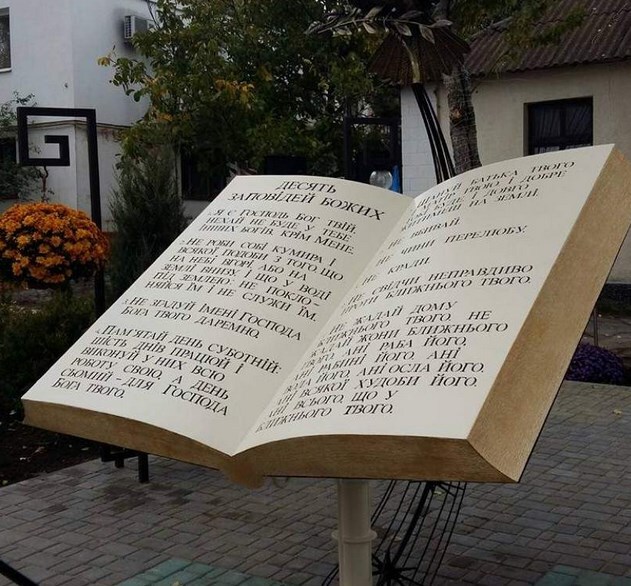 ДЕСЯТЬ
ЗАПОВІДЕЙ БОЖИХ
1. Я Є ГОСПОДЬ БОГ ТВІЙ,
НЕХАЙ НЕ БУДЕ У ТЕБЕ
ІНШИХ БОГІВ, КРІМ МЕНЕ.
2. НЕ РОБИ СОБІ КУМИРА І
ВСЯКОЇ ПОДОБИ З ТОГО, ЩО
НА НЕБІ ВГОРІ, АБО НА
ЗЕМЛІ ВНИЗУ, І ЩО У ВОДІ
ПІД ЗЕМЛЕЮ; НЕ ПОКЛО-
НЯЙСЯ ЇМ І НЕ СЛУЖИ ЇМ.
3. НЕ ЗГАДУЙ ІМЕНІ ГОСПОДА
БОГА ТВОГО ДАРЕМНО.
4. ПАМ'ЯТАЙ ДЕНЬ СУБОТНІЙ:
ШІСТЬ ДНІВ ПРАЦЮЙ І
ВИКОНУЙ У НИХ ВСЮ
РОБОТУ СВОЮ, А ДЕНЬ
СЬОМИЙ - ДЛЯ ГОСПОДА
БОГА ТВОГО.
БАТЬКА ТВОГО
ТВОЮ, І ДОБРЕ
БУДЕ І ДОВГО
НА ЗЕМЛІ.
НЕ ВБИВАЙ.
НЕ ЧИНИ ПЕРЕЛЮБУ.
НЕ КРАДИ.
НЕ СВІДЧИ НЕПРАВДИВО
ПРОТИ БЛИЖНЬОГО ТВОГО.
НЕ ЖАДАЙ ДОМУ
БЛИЖНЬОГО ТВОГО, НЕ
ЖАДАЙ ЖОНИ БЛИЖНЬОГО
ТВОГО, АНІ РАБА ЙОГО,
АНІ РАБИНІ ЙОГО, АНІ
ВОЛА ЙОГО, АНІ ОСЛА ЙОГО,
АНІ ВСЯКОЇ ХУДОБИ ЙОГО,
АНІ ВСЬОГО, ЩО У
БЛИЖНЬОГО ТВОГО.